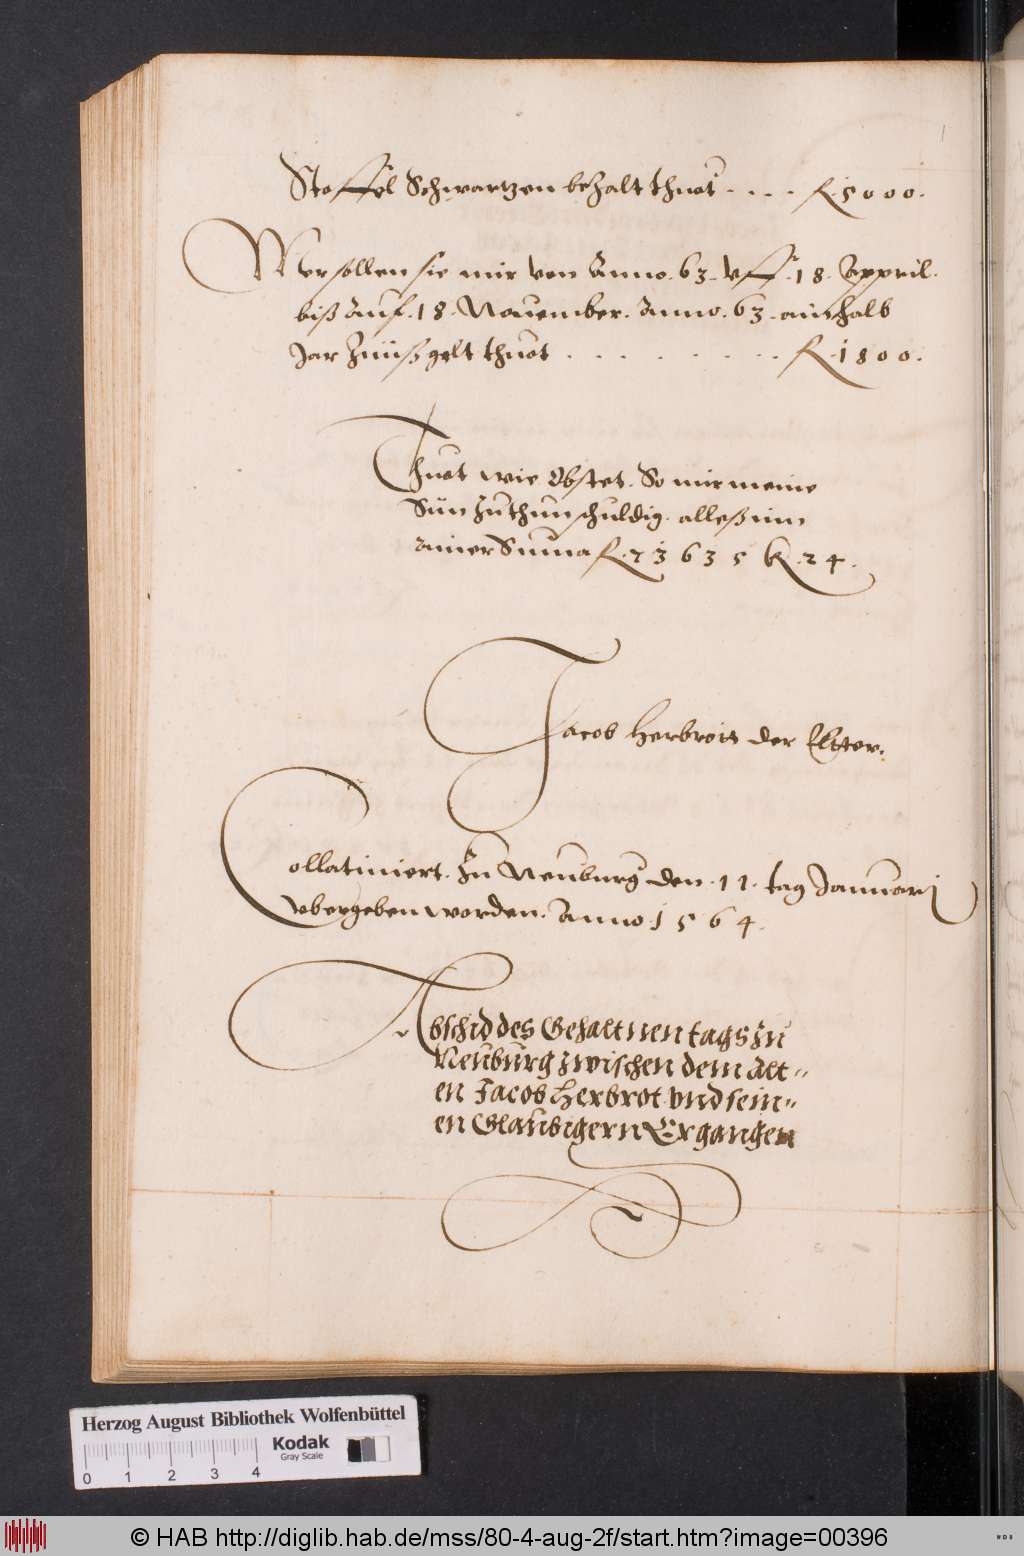 Stoffel Schwartzen bezalt thuot . . . . fl. 5000.
Mer sollen sie mir von Anno. 63. vff. 18. Appril.
biß Auf. 18. Nouember. Anno. 63. ain halb
Jar Zinßgelt thuot . . . . . . . . fl. 1800.
Thuot wie Obstet. So mir meine
Sün zuthun schuldig. alleß inn
ainer Suma fl. 73635 k. 24.
Jacob Herbrott der Eltter.
Collationiert. Zu Neuburg den. 11. tag Januarj
vbergeben worden. Anno 1564.
Abschid des Gehaltnen tags zu
Neuburg zwischen dem Alt-
en Jacob Herbrot vnd sein-
en Glaubigern Ergangen
Herzog August Bibliothek Wolfenbüttel
Kodak
Gray Scale
0 1 2 3 4
© HAB http://diglib.hab.de/mss/80-4-aug-2f/start.htm?image=00396